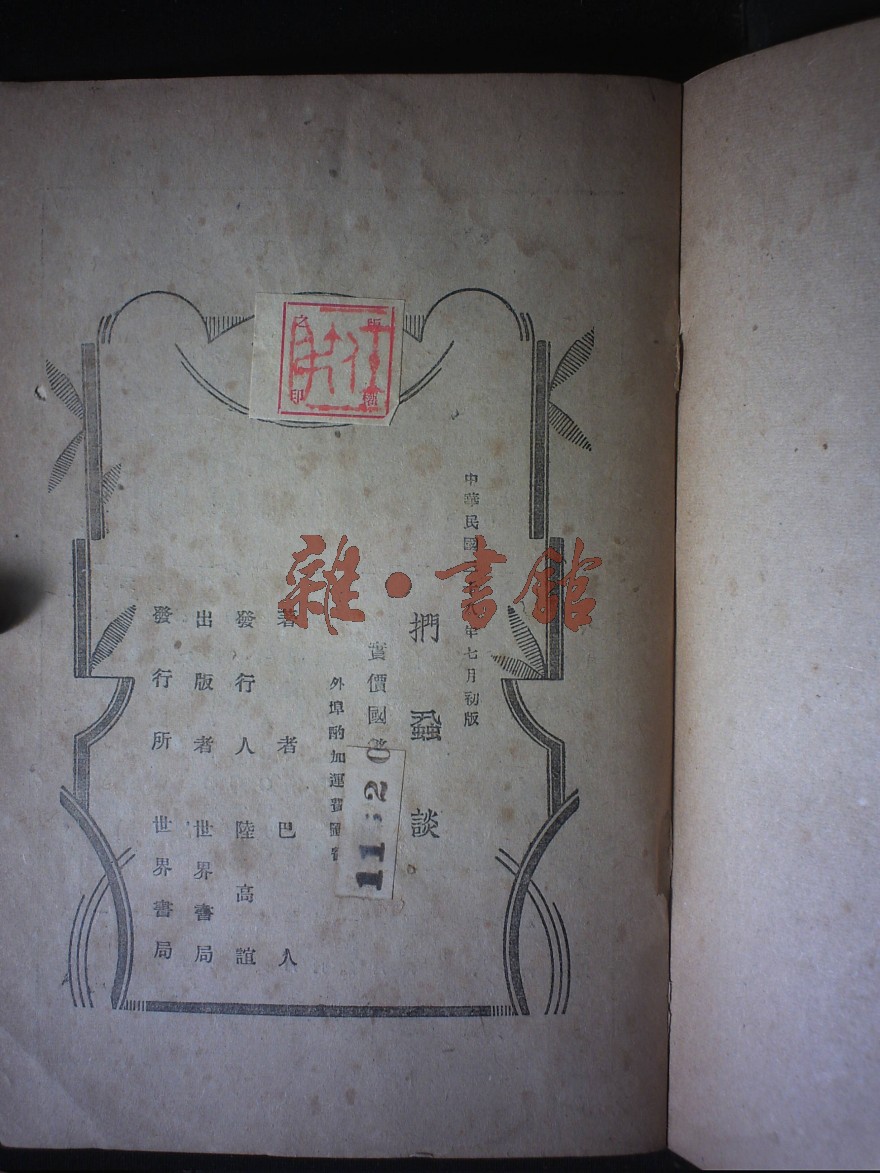 中華民國年七月初版
捫蝨談
實價國
外埠酌加運費
11.20
著者巴人
發行人陸高誼
出版者世界書局
發行所世界書局
版權之印
雜·書館